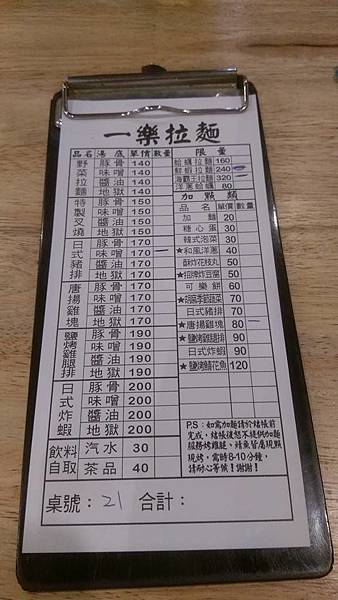 一樂拉麵
品名 湯底 單價 數量
野菜拉麵 豚骨 140
味噌 140
醬油 140
地獄 140
特製叉燒 豚骨 150
味噌 150
醬油 150
地獄 150
日式豬排 豚骨 170
味噌 170 一
醬油 170
地獄 170
唐揚雞塊 豚骨 170
味噌 170
醬油 170
地獄 170
鹽烤雞腿排 豚骨 190
味噌 190
醬油 190
地獄 190
日式炸蝦 豚骨 200
味噌 200
醬油 200
地獄 200
飲料自取 汽水 30
茶品 40
限量
蛤蠣拉麵 160
鮮蝦拉麵 240
海霸王拉麵 320
洋蔥蛤蠣 80
加點類
品名 單價 數量
加麵 20
糖心蛋 30
韓式泡菜 30
★和風洋蔥 40
酥炸花枝丸 50
★招牌炸豆腐 50
可樂餅 60
★胡麻季節蔬菜 70
日式豬排 70
★唐揚雞塊 80 一
★鹽烤雞腿排 90
日式炸蝦 90
★鹽烤鯖花魚 120
P.S:如需加麵請於結帳前
完成,結帳後恕不提供加麵
服務烤雞腿、鯖魚皆屬現點
現烤,需時8-10分鐘,
請耐心等候!謝謝!
桌號:21 合計: